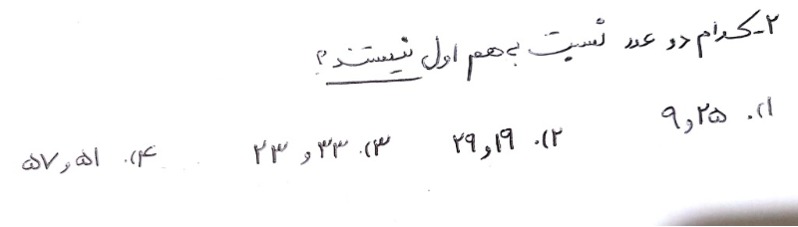 ۲-کدام دو عدد نسبت به هم اول نیستند؟
۱). ۲۵ و ۹
۲). ۱۹ و ۲۹
۳). ۳۳ و ۲۳
۴). ۵۱ و ۵۷